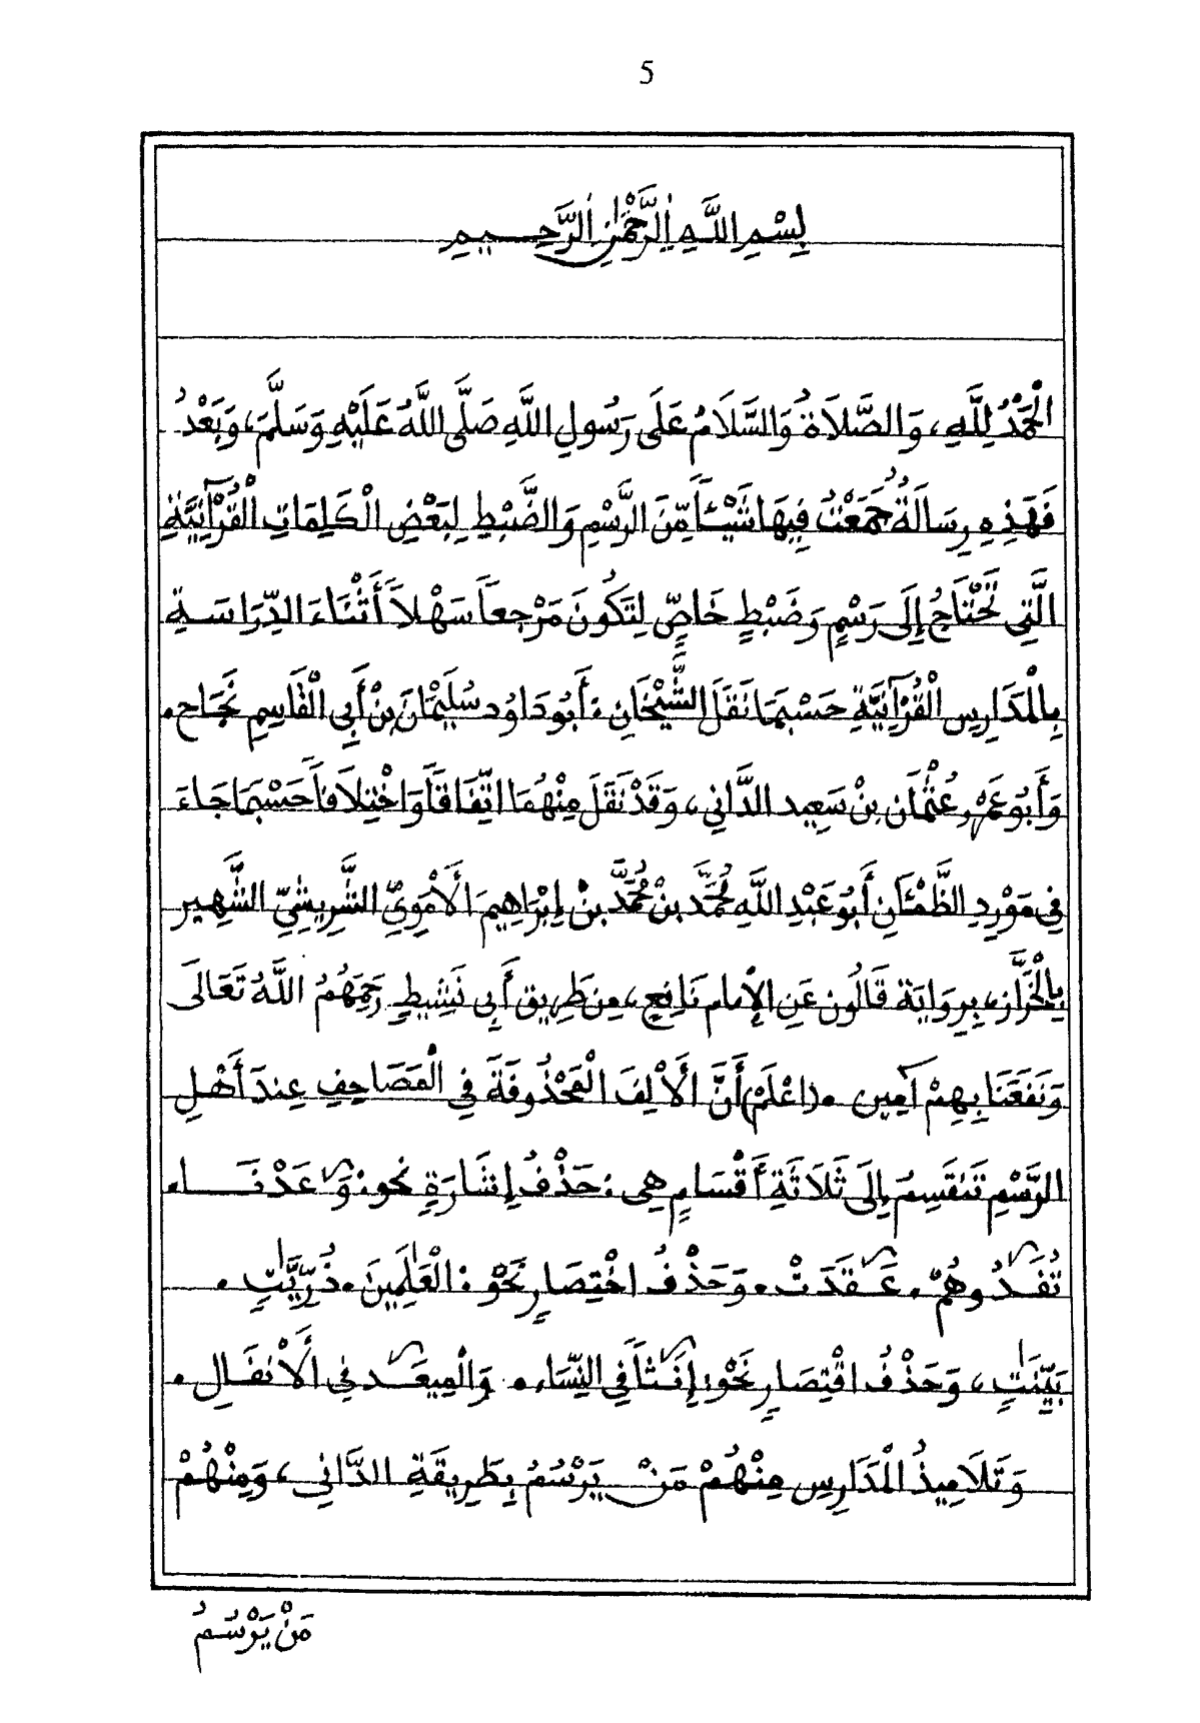 5
بِسْمِ اللَّهِ الرَّحْمَٰنِ الرَّحِيمِ
الْحَمْدُ لِلَّهِ، وَالصَّلَاةُ وَالسَّلَامُ عَلَى رَسُولِ اللَّهِ صَلَّى اللَّهُ عَلَيْهِ وَسَلَّمَ، وَبَعْدُ
فَهَذِهِ رِسَالَةٌ جَمَعْتُ فِيهَا شَيْئاً مِّنَ الرَّسْمِ وَالضَّبْطِ لِبَعْضِ الْكَلِمَاتِ الْقُرْآنِيَّةِ
الَّتِي تَحْتَاجُ إِلَى رَسْمٍ وَضَبْطٍ خَاصٍّ لِتَكُونَ مَرْجِعاً سَهْلاً أَثْنَاءَ الدِّرَاسَةِ
بِالْمَدَارِسِ الْقُرْآنِيَّةِ حَسْبَمَا نَقَلَ الشَّيْخَانِ: أَبُو دَاوُد سُلَيْمَٰانَ بْنَ أَبِي الْقَاسِمِ نَجَاح.
وَأَبُو عَمْرٍو عُثْمَان بِنْ سَعِيد الدَّانِي، وَقَدْ نَقَلَ مِنْهُمَا اتِّفَاقاً وَاخْتِلَافاً حَسْبَمَا جَاءَ
فِي مَوْرِدِ الظَّمْئَانِ أَبُو عَبْدِ اللَّهِ مُحَمَّد بنْ مُحَمَّد بنْ إِبْرَاهِيمَ الأَمْوِيِّ الشَّرِيشِيِّ الشَّهِير
بِالْخَرَّازِ، بِرِوَايَةِ قَالُون عَنِ الإِمام نَافِعٍ، مِن طَرِيقِ أَبِي نَشِيطٍ رَحِمَهُمُ اللَّهُ تَعَالَى
وَنَفَعَنَا بِهِمْ آمِين . (اعْلَمْ) أَنَّ الأَلِفَ الْمَحْذُوفَةَ فِي الْمَصَاحِفِ عِندَ أَهْلِ
الرَّسْمِ تَنقَسِمُ إِلَى ثَلَاثَةِ أَقْسَامٍ هِي: حَذْفُ إِشَارَةٍ نحو: وَٰعَدْنَا.
تُفَٰدُوهُمْ . عَٰقَدَتْ . وَحَذْفُ اخْتِصَارٍ نَحْوُ: الْعَٰلَمِينَ . ذُرِّيَّٰتٍ .
بَيِّنَٰتٍ، وَحَذْفُ اقْتِصَارٍ نَحْوُ: إِنَٰثاً فِي النِّسَاءِ. وَالْمِيعَٰد فِي الأَنْفَالِ .
وَتَلَامِيذُ الْمَدَارِسِ مِنْهُمْ مَنْ يَرْسُمُ بِطَرِيقَةِ الدَّانِي، وَمِنْهُمْ
مَنْ يَرْسُمُ